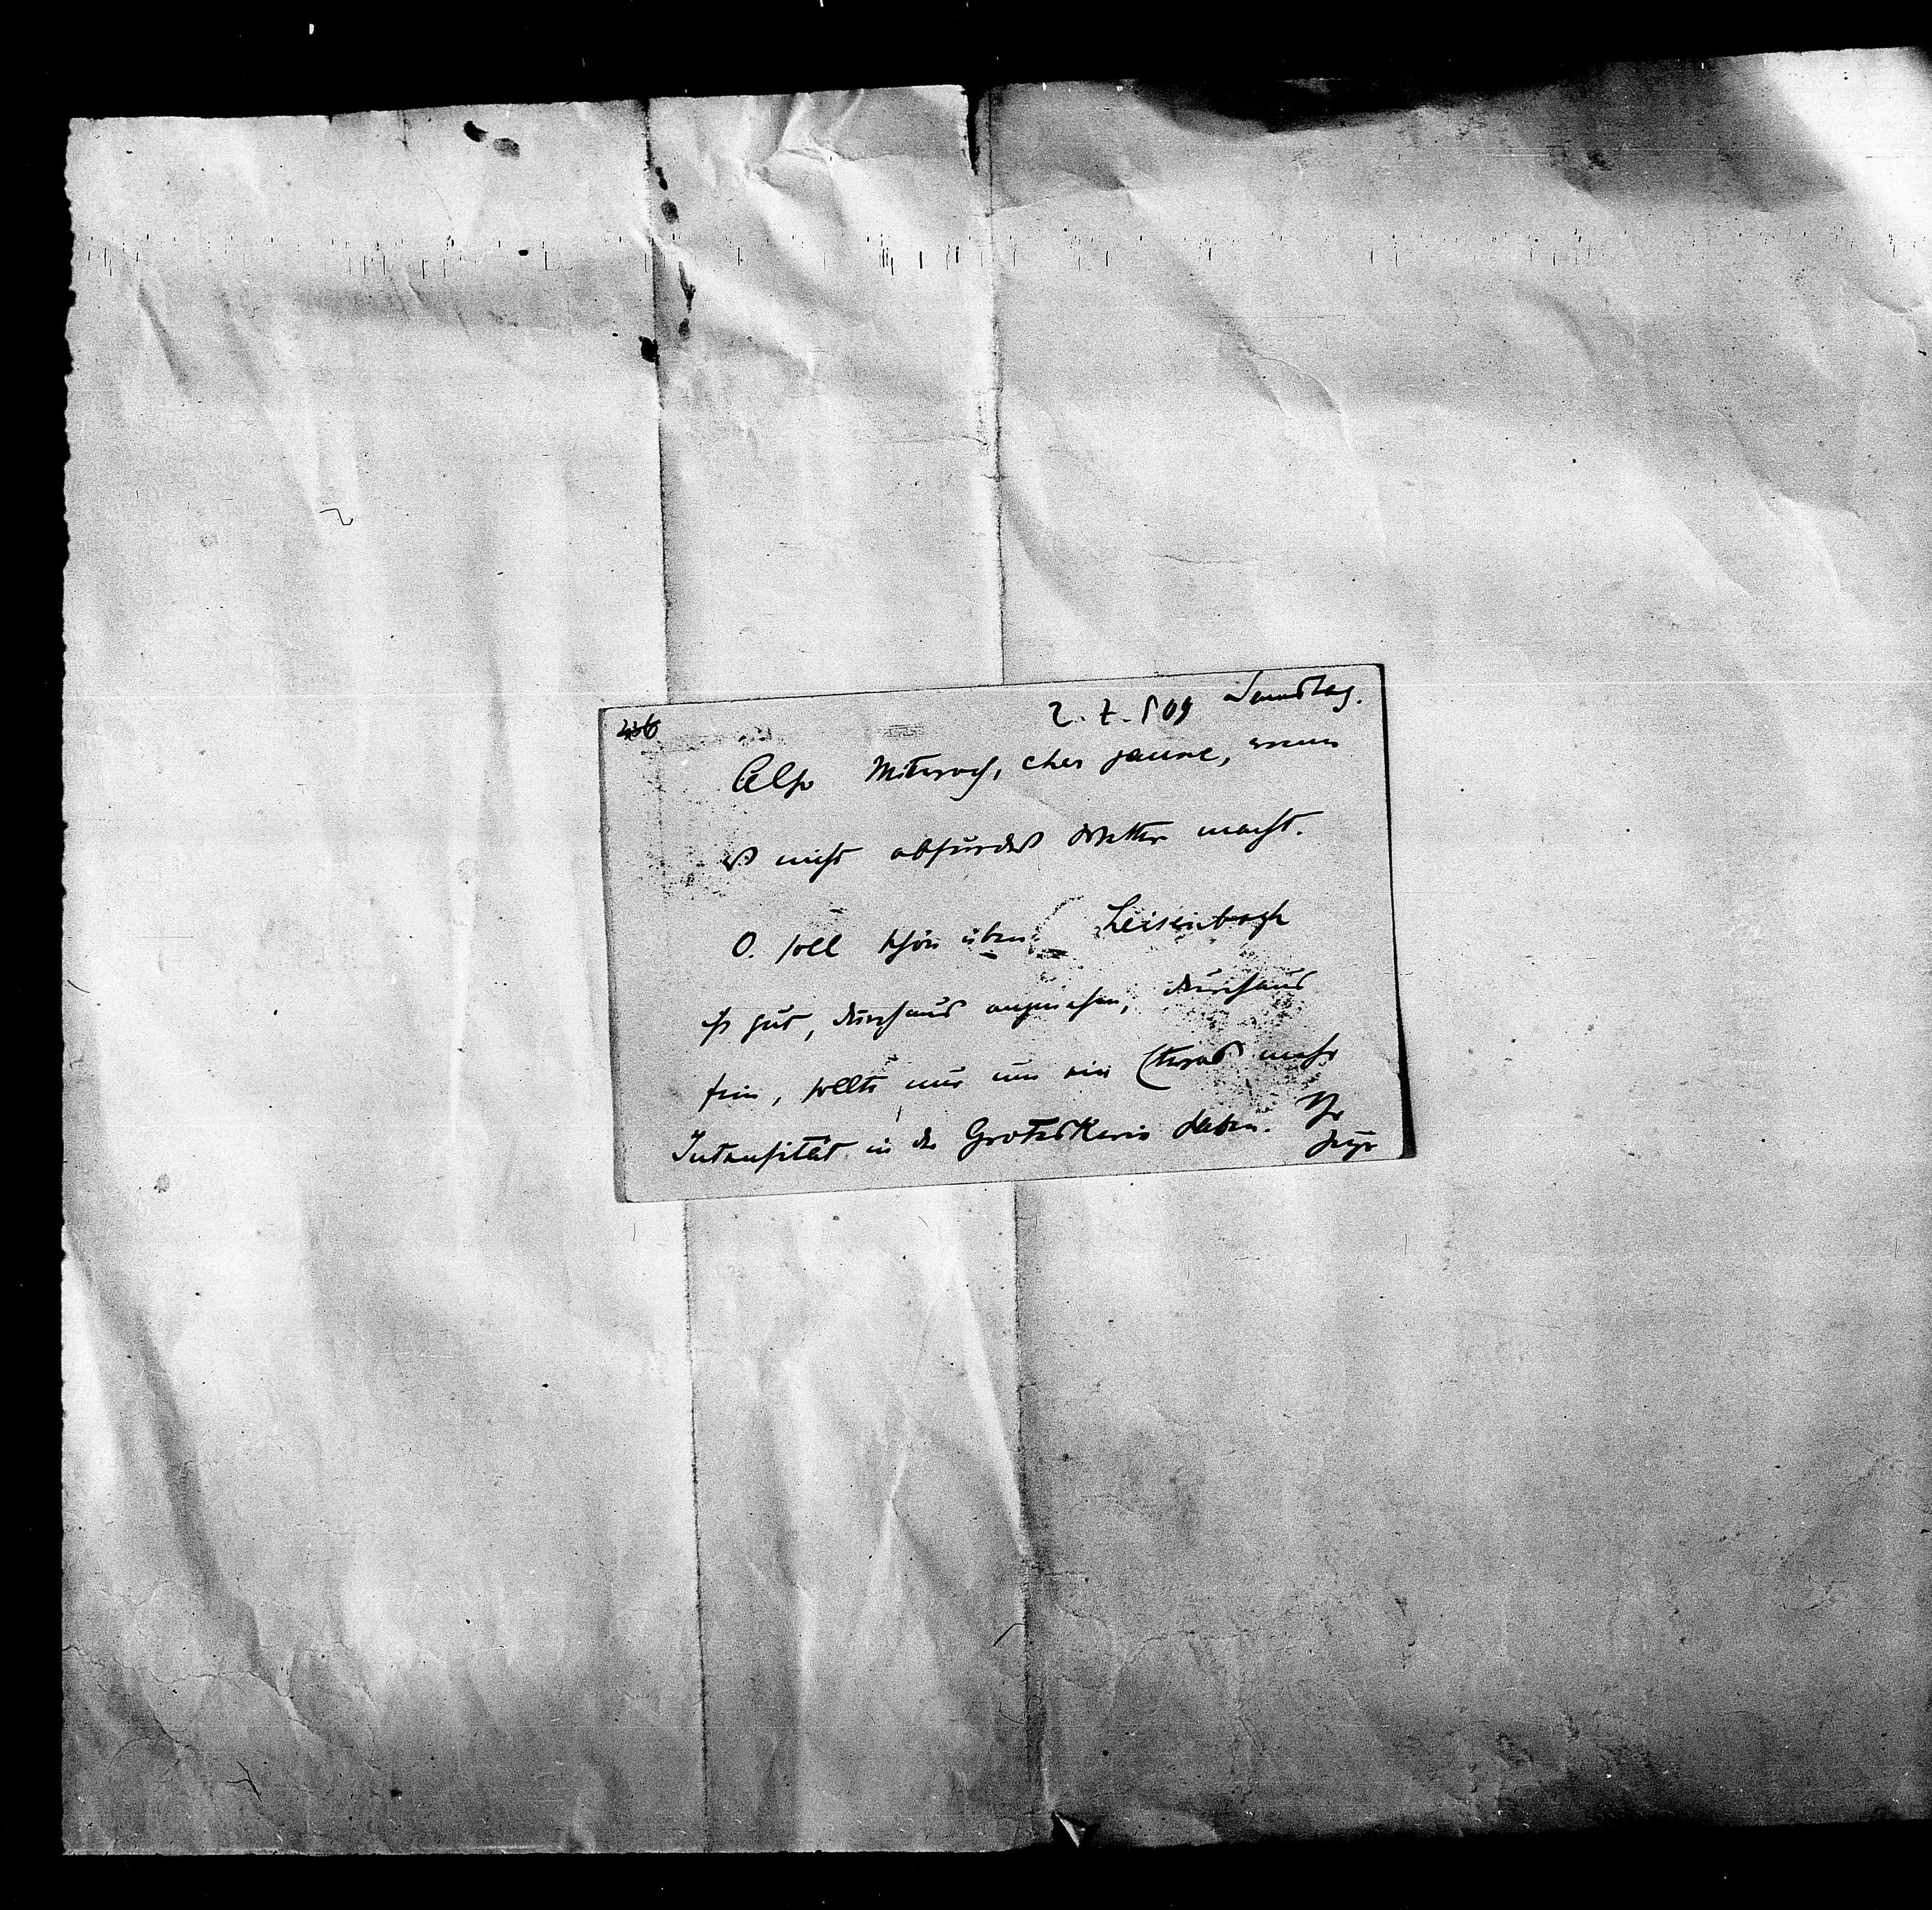 236
2. 7. 09 Samstag.
Also Mittwoch, cher jeune, wenn
es nicht absurdes Wetter macht.
O. soll schön üben. Leisenbogh
ist gut, durchaus angenehm, durchaus
fein, sollte nur um ein Etwas mehr
Intensität in der Groteskerie haben. Ihr